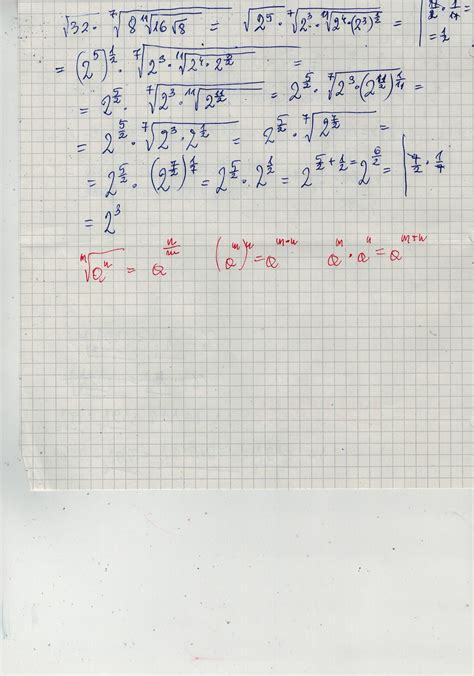 √32 · ⁷√(8 ¹¹√(16√8)) = √(2⁵) · ⁷√(2³ · ¹¹√(2⁴ · (2³)^(1/2))) = | 11/2 · 1/11 = = 1/2
= (2⁵)^(1/2) · ⁷√(2³ · ¹¹√(2⁴ · 2^(3/2))) =
= 2^(5/2) · ⁷√(2³ · ¹¹√(2^(11/2))) = 2^(5/2) · ⁷√(2³ · (2^(11/2))^(1/11)) =
= 2^(5/2) · ⁷√(2³ · 2^(1/2)) = 2^(5/2) · ⁷√(2^(7/2)) =
= 2^(5/2) · (2^(7/2))^(1/7) = 2^(5/2) · 2^(1/2) = 2^(5/2 + 1/2) = 2^(6/2) = | 7/2 · 1/7
= 2³
ᵐ√(aⁿ) = a^(n/m) (aᵐ)ⁿ = a^(m·n) aᵐ · aⁿ = a^(m+n)